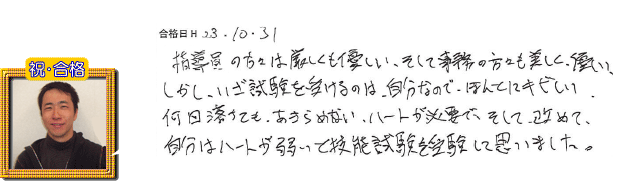 合格日 H 23.10.31
祝・合格
指導員の方々は厳しくも優しい、そして事務の方々も美しく、優しい、
しかし、いざ試験を受けるのは、自分なので、ほんとにキビしい
何回落ちても、あきらめない、ハートが必要で、そして、改めて、
自分はハートが弱いって技能試験を経験して思いました。